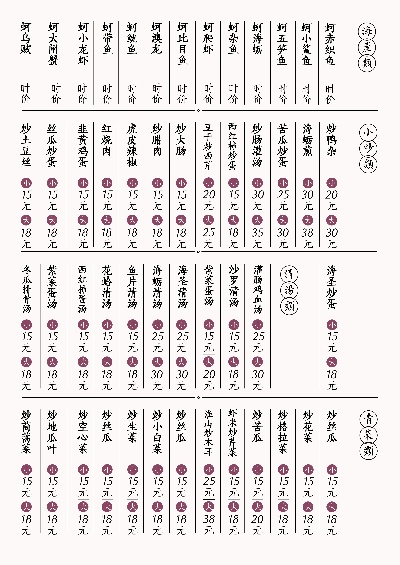 海产类
蚵赤绒鱼 时价
蚵小鲨鱼 时价
蚵五笋鱼 时价
蚵海蛎 时价
蚵杂鱼 时价
蚵爬虾 时价
蚵比目鱼 时价
蚵澳龙 时价
蚵鱿鱼 时价
蚵带鱼 时价
蚵小龙虾 时价
蚵大闸蟹 时价
蚵乌贼 时价
小炒类
炒鸭杂 小 20元 大 30元
海蛎煎 小 30元 大 38元
苦瓜炒蛋 小 25元 大 30元
炒肠灌汤 小 30元 大 35元
西红柿炒蛋 小 15元 大 18元
炒西芹 小 20元 大 25元
炒大肠 小 15元 大 18元
炒腊肉 小 15元 大 18元
虎皮辣椒 小 15元 大 18元
红烧肉 小 15元 大 18元
韭黄鸡蛋 小 15元 大 18元
丝瓜炒蛋 小 15元 大 18元
炒土豆丝 小 15元 大 18元
海圣炒蛋 小 15元 大 18元
清汤类
灌肠鸡血汤 小 25元 大 30元
沙罗清汤 小 15元 大 18元
紫菜蛋汤 小 15元 大 20元
海圣清汤 小 25元 大 30元
海蛎清汤 小 25元 大 30元
鱼片清汤 小 15元 大 18元
花蛤清汤 小 15元 大 18元
西红柿蛋汤 小 15元 大 18元
紫菜蛋汤 小 15元 大 18元
冬瓜排骨汤 小 15元 大 18元
青菜类
炒丝瓜 小 15元 大 18元
炒花菜 小 15元 大 18元
炒格拉菜 小 15元 大 18元
炒苦瓜 小 15元 大 20元
虾米炒芹菜 小 15元 大 18元
淮山炒木耳 小 25元 大 38元
炒丝瓜 小 15元 大 18元
炒小白菜 小 15元 大 18元
炒生菜 小 15元 大 18元
炒丝瓜 小 15元 大 18元
炒空心菜 小 15元 大 18元
炒地瓜叶 小 15元 大 18元
炒茼蒿菜 小 15元 大 18元